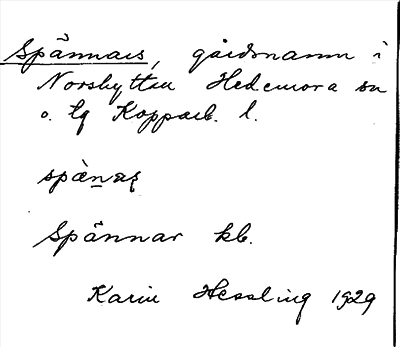 Spännars, gårdsnamn i
Norshyttan Hedemora sn
o. tg Kopparb. l.
Spännar kb.
Karin Hessling 1929